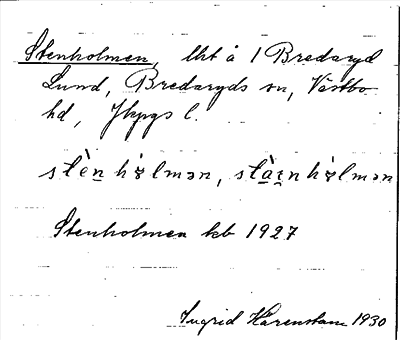 Stenholmen, lht å 1 Bredaryd
Lund, Bredaryds sn, Västbo
hd, Jkpgs l.
Stenholmen kb 1927
Ingrid Härenstam 1930